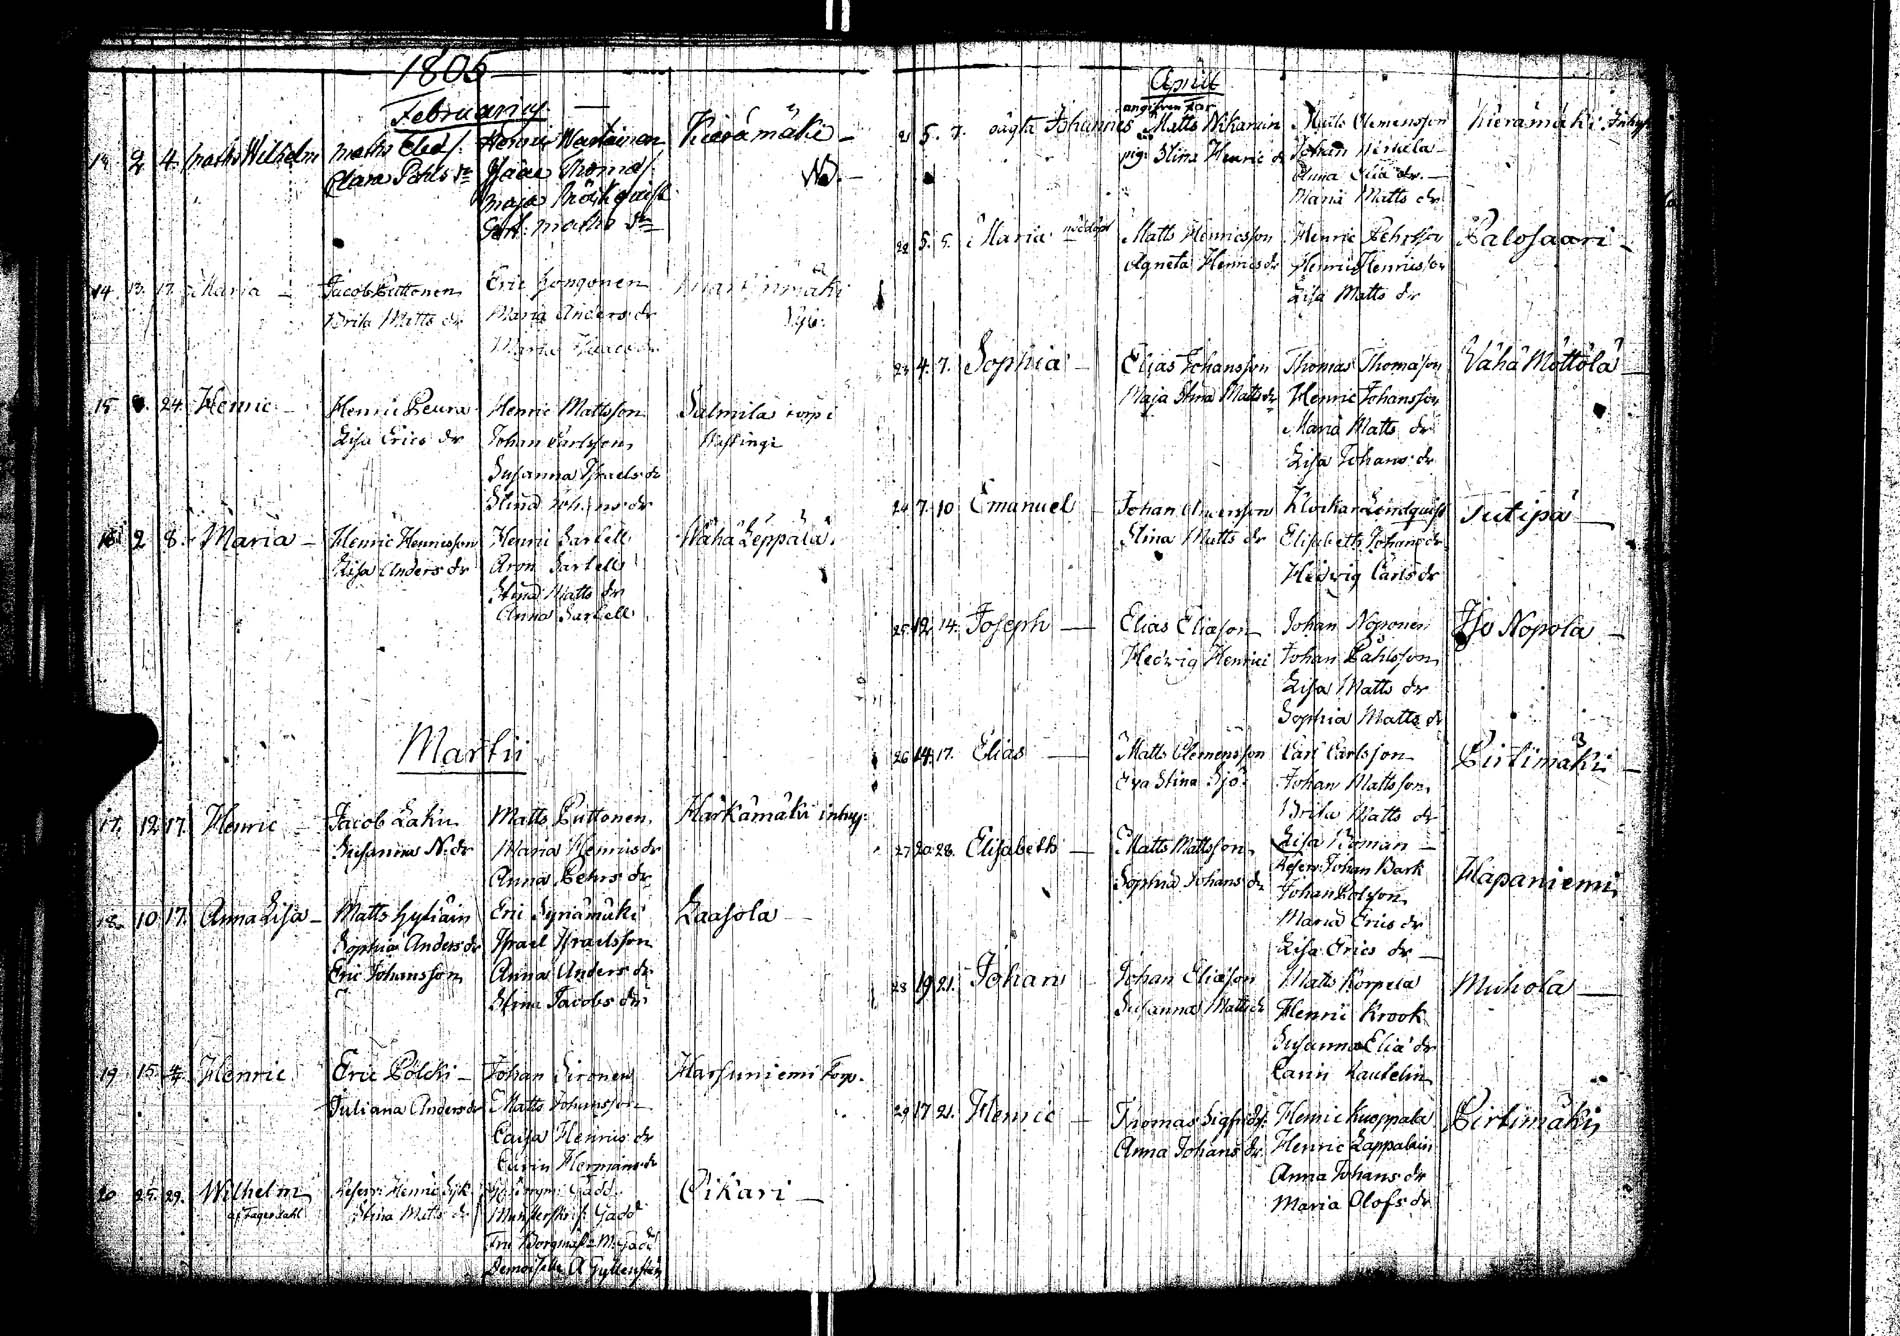 1805
Februarius
13 2 4. Maths Wilhelm
Maths Elia s.
Clara Påhls dr
Maja
Kierämäki
14. 13. 17. Maria
Jacob Puttonen
Brita Matts dr
Eric
Maria Anders dr
Maria
15 24. Henric
Henric Peura
Lisa Erics dr
Henric Mattsson
Johan Carlsson
Susanna Israels dr
Stina
Salmila torp i
16 2 8. Maria
Henric Henricsson
Lisa Anders dr
Henric
Aron
Stina Matts dr
Anna
Wähä Leppälä
Martii
17. 12. 17. Henric
Jacob Laku
Susanna N. dr
Matts Puttonen
Maria Henrics dr
Anna Pehrs dr
Härkämäki inhys:
18. 10. 17. Anna Lisa
Matts
Sophia Anders dr
Eric Johansson
Eric Syrämäki
Israel Israelsson
Anna Anders dr
Stina Jacobs dr
Laasola
19. 15. Henric
Eric Pölcki
Juliana Anders dr
Johan Sironen
Matts Johansson
Caisa Henrics dr
Carin Hermans dr
Harsuniemi Torp.
20 25. 29. Wilhelm
Henric
Stina Matts dr
Gadd
Gadd
Fru
Demoiselle A
Pikari
April
angifven Far
21 5. 7. oägta Johannes
Matts Nikarain
pig. Stina Henrics dr
Matts Clemensson
Johan
Anna Elia dr.
Maria Matts dr
Kierämäki Inhys
22 5. 5. Maria nöddöpt
Matts Henricsson
Agneta Henrics dr
Henric Pehrsson
Henric Henricsson
Lisa Matts dr
Palosaari
23 4. 7. Sophia
Elias Johansson
Maja Stina Matts dr
Thomas Thomasson
Henric Johansson
Maria Matts dr
Lisa Johans dr
Wähä Möttölä
24 7. 10 Emanuel
Johan Andersson
Stina Matts dr
Klockar Lindquist
Elisabeth Johans dr
Hedwig Carls dr
Jutipä
25. 12. 14. Joseph
Elias Eliasson
Hedwig Henrici
Johan Noponen
Johan Påhlsson
Lisa Matts dr
Sophia Matts dr
Iso Nopola
26 14. 17. Elias
Matts Clemensson
Eva Stina Sjö
Carl Carlsson
Johan Mattsson
Brita Matts dr
Lisa Roman
Pirtimäki
27 20. 28. Elisabeth
Matts Mattsson
Sophia Johans dr
Refser. Johan Bark
Johan Polsson
Maria Erics dr
Lisa Erics dr
Hapaniemi
28 19 21. Johan
Johan Eliasson
Susanna Matts dr
Matts Korpela
Henric Krook
Susanna Elia dr
Carin Kautelin
Muhola
29 17 21. Henric
Thomas Sigfrids s:
Anna Johans dr
Henric Kuoppala
Henric Lappalain
Anna Johans dr
Maria Olofs dr
Pirtimäki